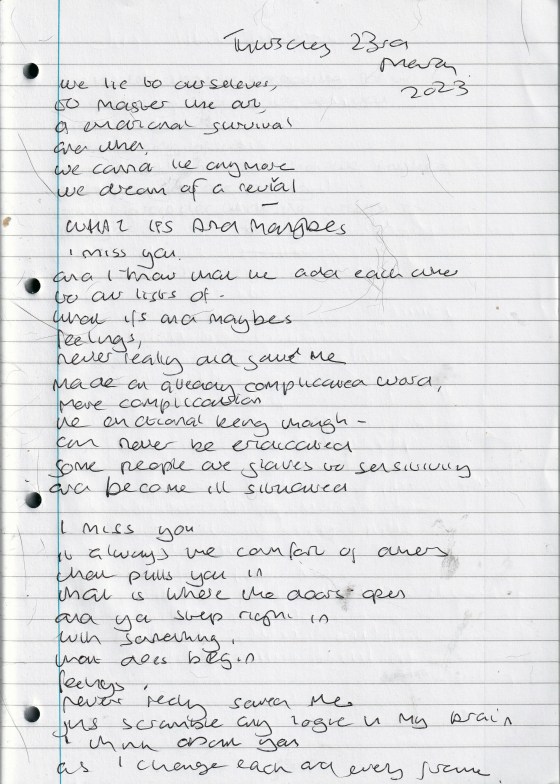 Thursday 23rd
March
2023
we lie to ourselves,
to master the art,
a emotional survival
and when,
we cannot lie anymore
we dream of a revial
WHAT IFS And Maybes
I miss you.
and I know that we add each other
to our lists of -
what ifs and maybes
feelings,
never really did save me
made an already complicated world,
more complication
the emotional being though -
can never be eradicated
some people are slaves to sensitivity
and become ill situated
I miss you
it always the comfort of others
that pulls you in
that is where the doors open
and you step right in
with something,
that does begin
feelings,
never really saved me
just scramble any logic in my brain
I think about you
as I change each and every frame.